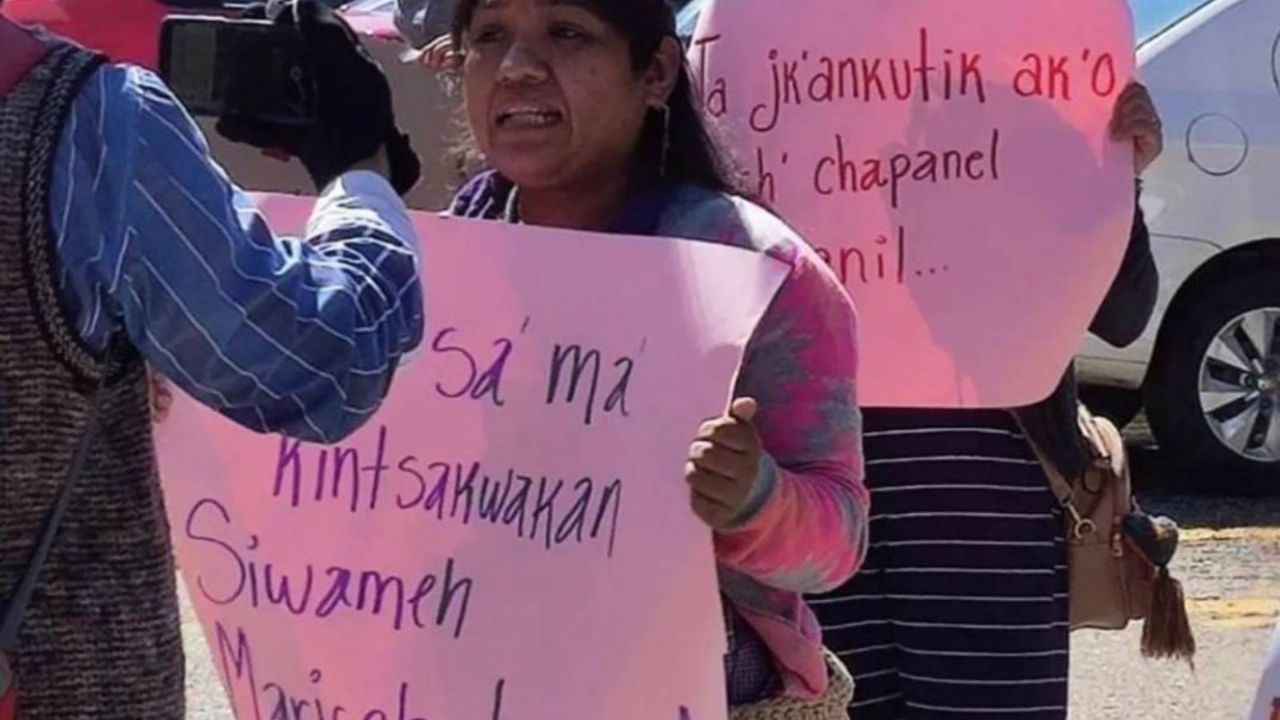 sa' ma'
Kintsakwakan
Siwameh
Ta jk'ankutik ak'o
chapanel